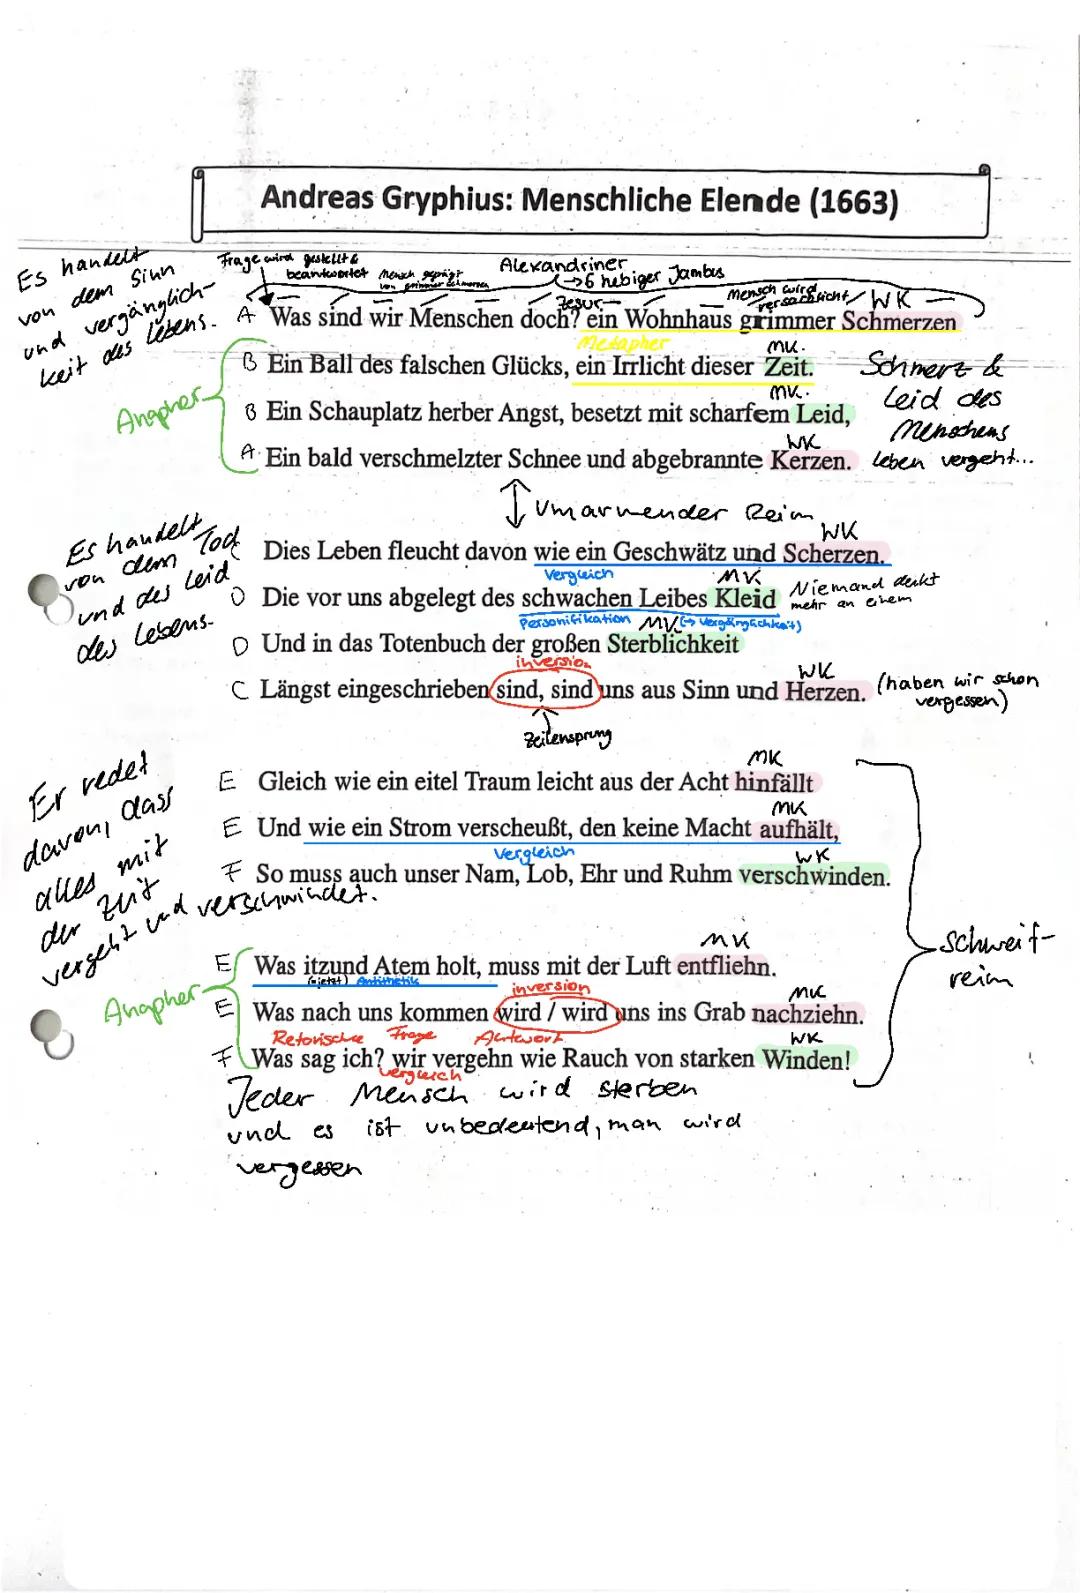 Andreas Gryphius: Menschliche Elende (1663)
Es handelt
von dem Sinn
und vergänglich-
keit des Lebens.
Frage wird gestellt &
beantwortet
Mensch geprägt
von grimmer Schmerzen
Alexandriner
→ 6 hebiger Jambus
Zesur
Mensch wird
versachlicht
WK
A Was sind wir Menschen doch? ein Wohnhaus grimmer Schmerzen
Metapher
MK.
B Ein Ball des falschen Glücks, ein Irrlicht dieser Zeit.
MK.
Anapher
B Ein Schauplatz herber Angst, besetzt mit scharfem Leid,
WK
A Ein bald verschmelzter Schnee und abgebrannte Kerzen.
Schmerz &
Leid des
Menschens
leben vergeht...
Umarmender Reim
Es handelt
von dem Tod
und des Leid
des Lebens.
WK
C Dies Leben fleucht davon wie ein Geschwätz und Scherzen.
Vergleich
MK
D Die vor uns abgelegt des schwachen Leibes Kleid
Niemand denkt
mehr an einem
Personifikation
MK (→ Vergänglichkeit)
D Und in das Totenbuch der großen Sterblichkeit
inversion
WK
C Längst eingeschrieben sind, sind uns aus Sinn und Herzen.
(haben wir schon
vergessen)
Zeilensprung
Er redet
davon, dass
alles mit
der Zeit
vergeht und verschwindet.
MK
E Gleich wie ein eitel Traum leicht aus der Acht hinfällt
MK
E Und wie ein Strom verscheußt, den keine Macht aufhält,
Vergleich
WK
F So muss auch unser Nam, Lob, Ehr und Ruhm verschwinden.
schweif-
reim
MK
E Was itzund Atem holt, muss mit der Luft entfliehn.
(jetzt) Antithetik
inversion
MK
Anapher
E Was nach uns kommen wird / wird uns ins Grab nachziehn.
Retorische Frage Antwort
WK
F Was sag ich? wir vergehn wie Rauch von starken Winden!
vergleich
Jeder Mensch wird sterben
und es ist unbedeutend, man wird
vergessen